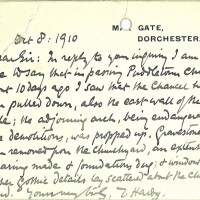 MAX GATE,
DORCHESTER.
Oct 8: 1910
Dear Sir: In reply to your inquiry I am
to say that in passing Puddletown Chu
about 10 days ago I saw that the Chancel h
pulled down, also the east wall of the
the adjoining arch, being endanger
demolitions, was propped up. Gravestones
removed from the churchyard, an extent
aring made & foundations dug; & window
her gothic details lay scattered about the ch
Yours very truly, T. Hardy.